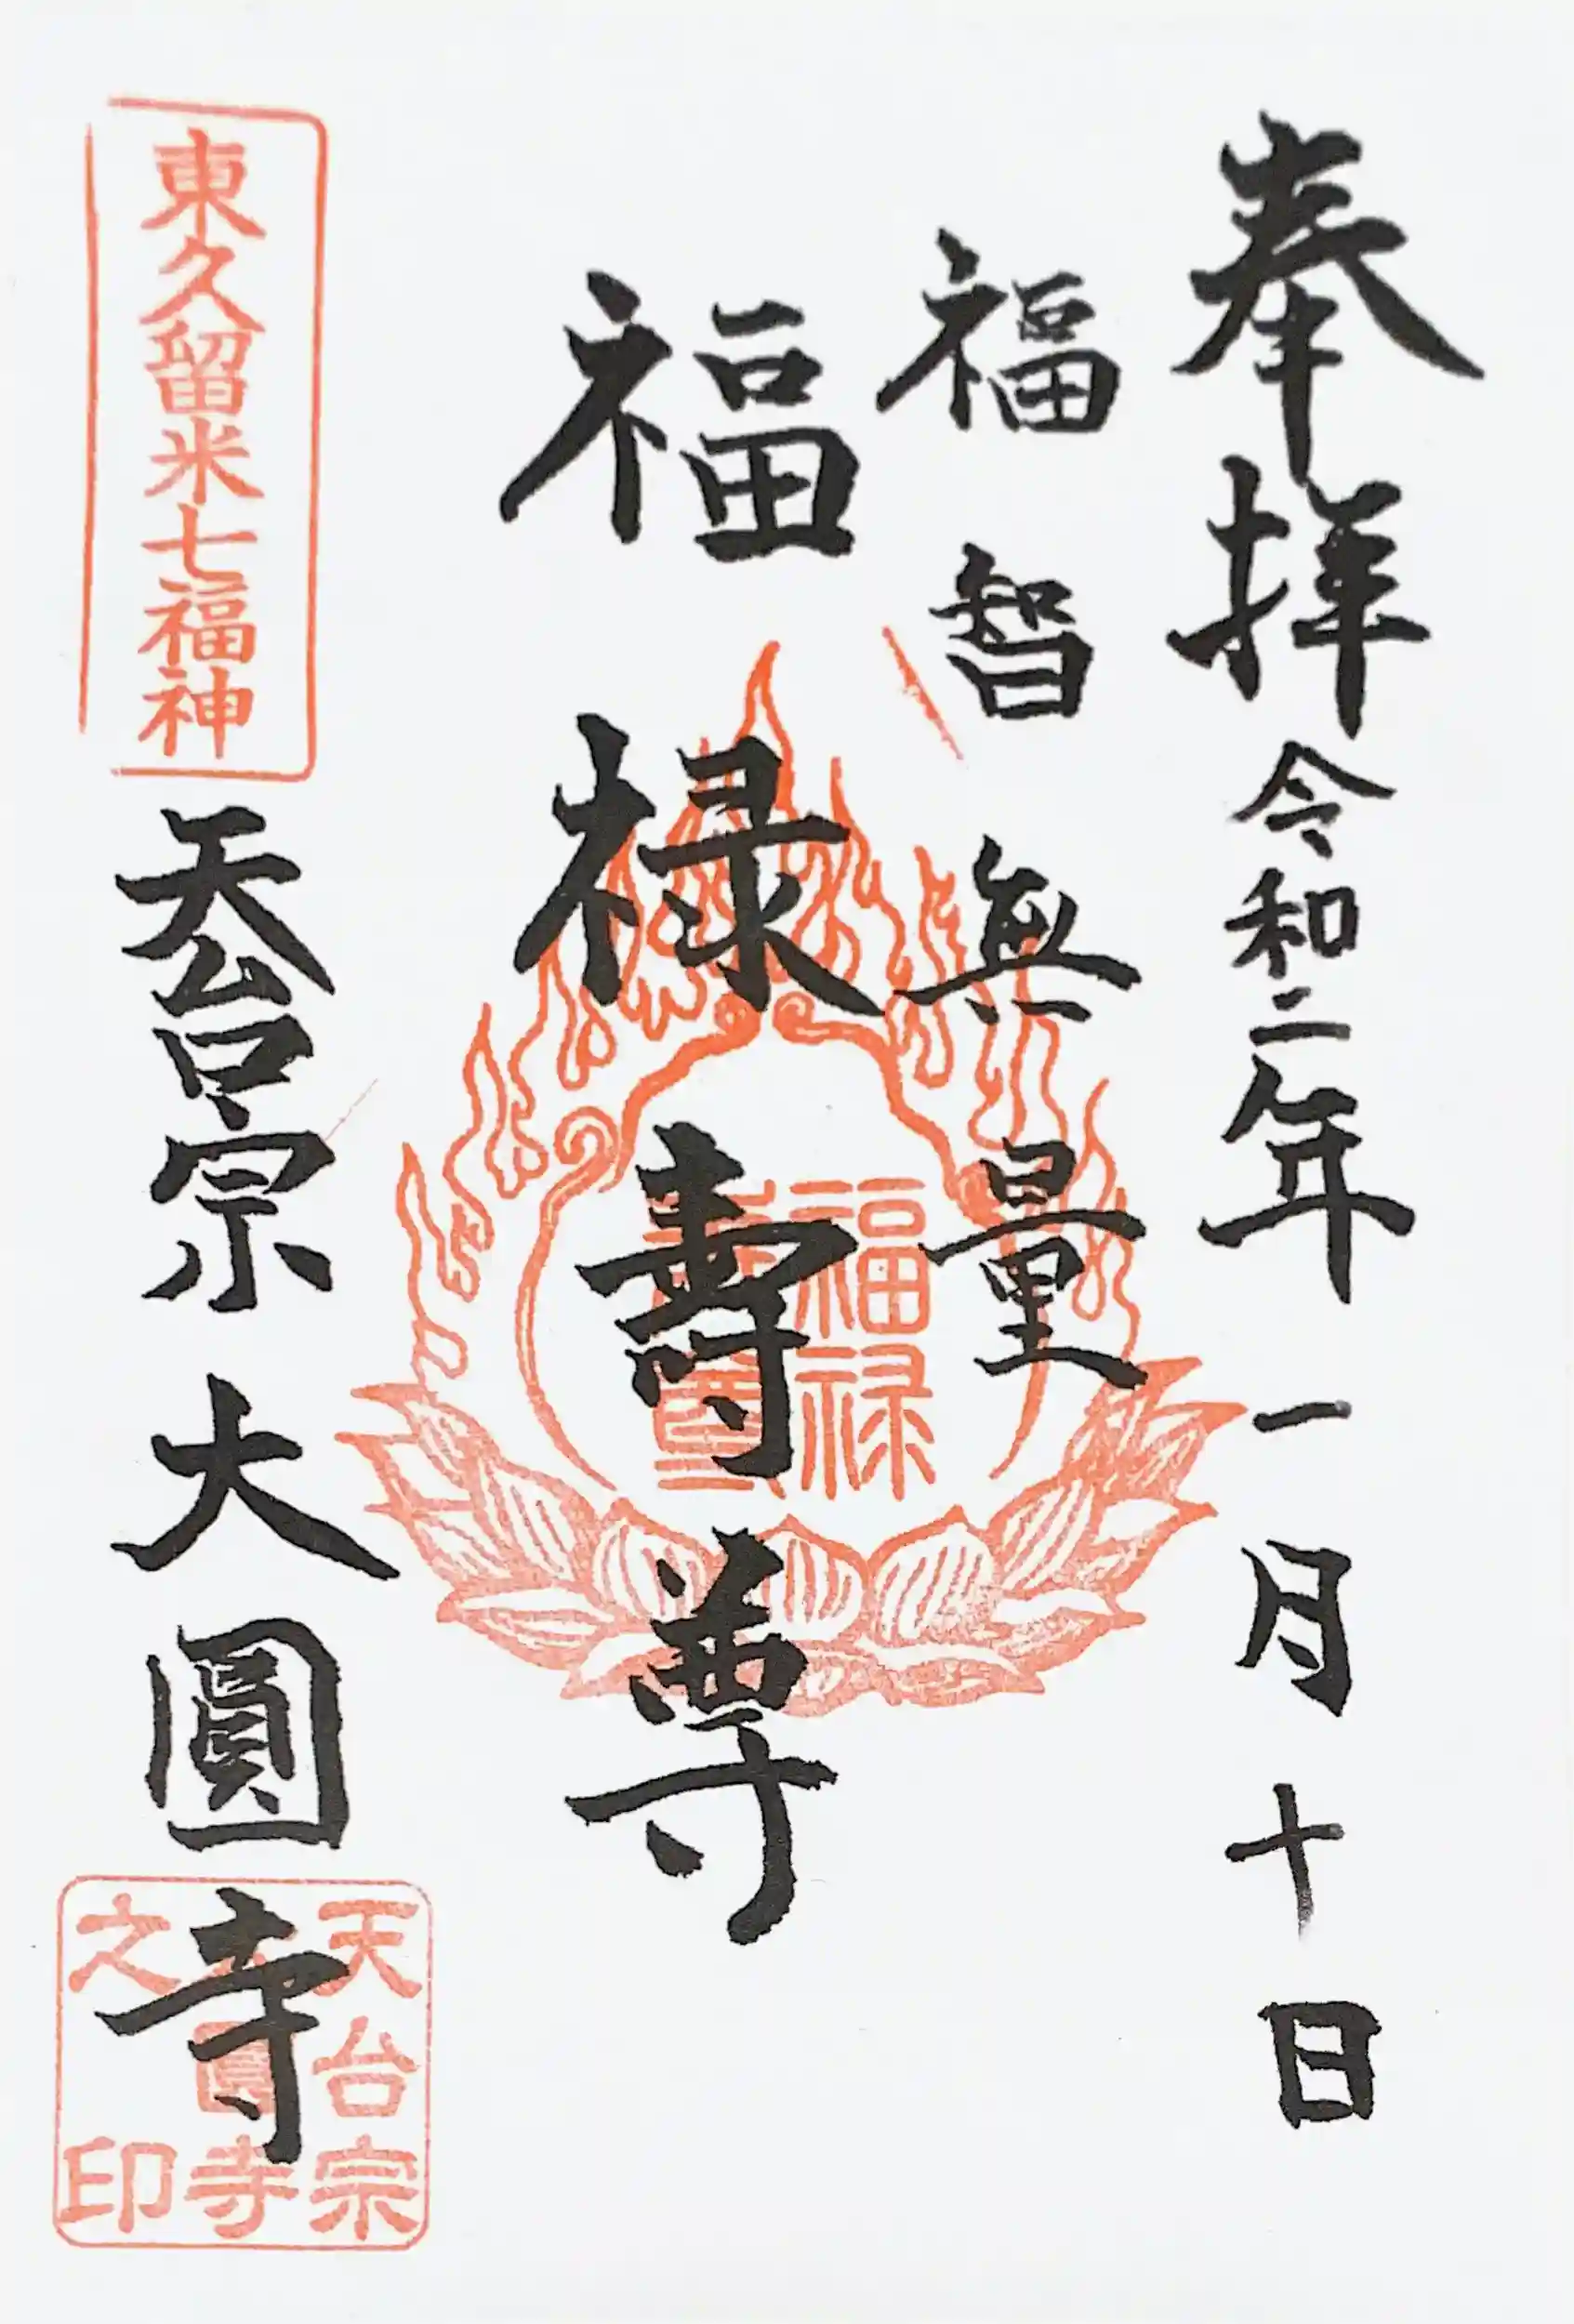 奉拝 令和二年一月十日
福智無量
福禄壽尊
福禄
東久留米七福神
天台宗 大圓寺
天台宗
圓寺
之印